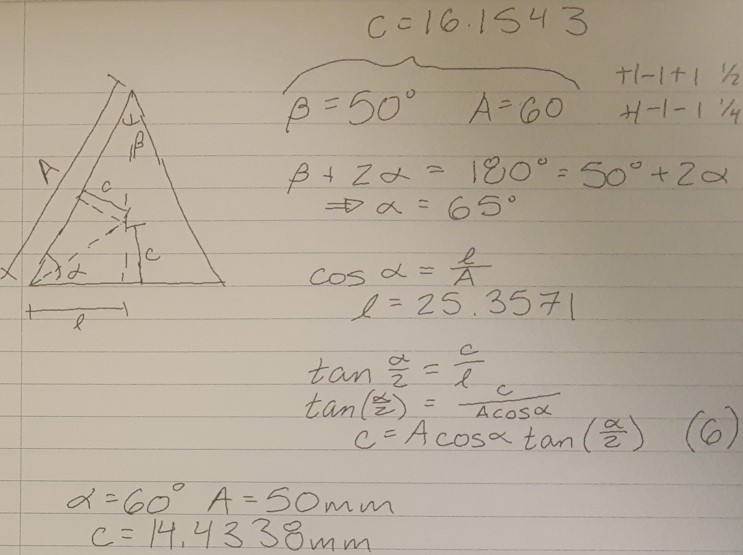 c = 16.1543
β = 50° A = 60
+1-1+1 1/2
+1-1-1 1/4
A
β
c
c
α
l
β + 2α = 180° = 50° + 2α
⇒ α = 65°
cos α = l/A
l = 25.3571
tan α/2 = c/l
tan(α/2) = c/(A cos α)
c = A cos α tan(α/2) (6)
α = 60° A = 50mm
c = 14.4338mm